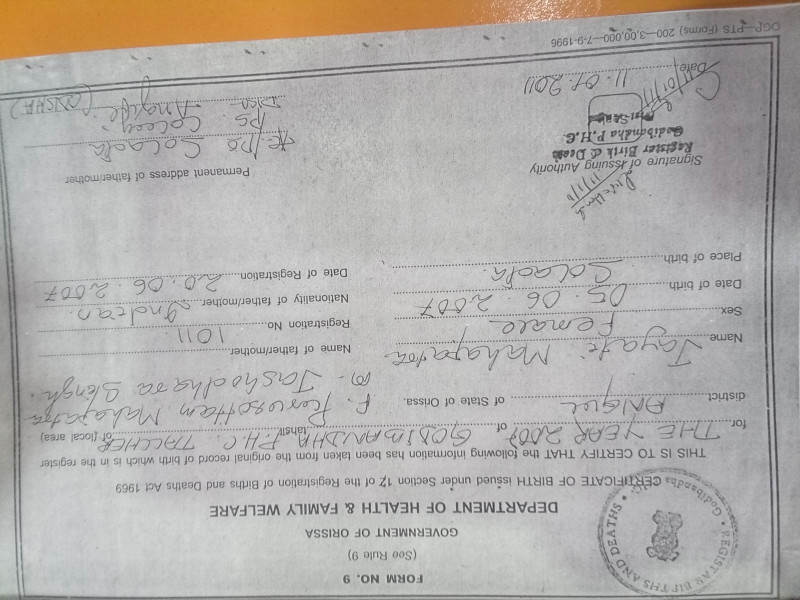 FORM NO. 9
(See Rule 9)
GOVERNMENT OF ORISSA
DEPARTMENT OF HEALTH & FAMILY WELFARE
REGISTAR BIRTHS AND DEATHS • Godibandha P.H.C.
CERTIFICATE OF BIRTH issued under Section 17 of the Registration of Births and Deaths Act 1969
THIS IS TO CERTIFY THAT the following information has been taken from the original record of birth which is in the register
for THE YEAR 2007 of GODIBANDHA P.H.C. tahsil TALCHER of (local area)
district ANGUL of State of Orissa.
Name Jayati Mahapatra
Sex Female
Date of birth 05.06.2007
Place of birth Colaola.
Name of father/mother F. Purusottam Mahapatra
M. Jashodhara Singh.
Registration No. 1011
Nationality of father/mother Indian.
Date of Registration 20.06.2007
Signature of Issuing Authority
Register Birth & Death
Godibandha P.H.C.
Date 11.01.2011
Permanent address of father/mother
At/Po Colaola
PS. Coleery
Dist. Angul (ORISSA)
OGP—PTS (Forms) 200—3,00,000—7-9-1996